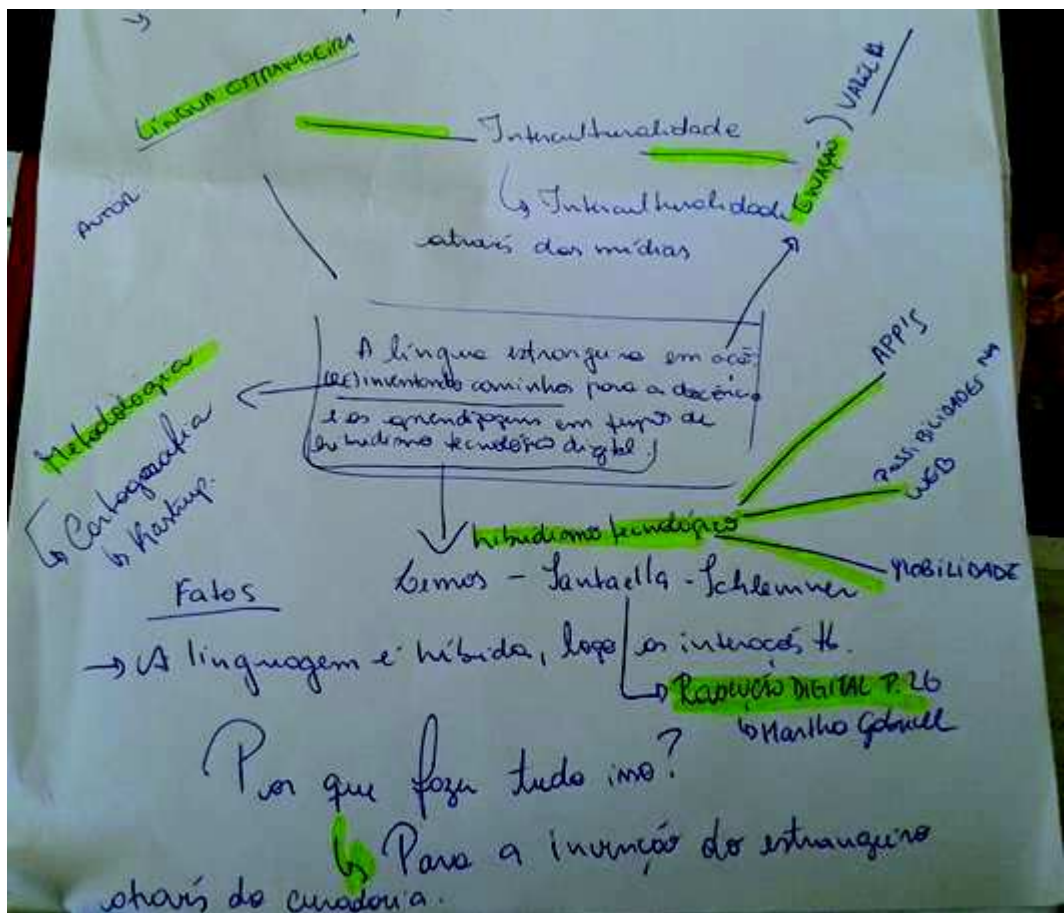 LÍNGUA ESTRANGEIRA
Interculturalidade
↳ Interculturalidade
através das mídias
ENAÇÃO)
AUTOR
A língua estrangeira em acé
(re)inventando caminhos para a docênci
e as aprendizagens em tempos de
hibridismo tecnológico digital.
APP'S
POSSIBILIDADES NA
WEB
MOBILIDADE
Metodologia
↳ Cartografia
↳ Kastrup.
hibridismo tecnológico
Lemos - Santaella - Schlemmer
Fatos
→ A linguagem é híbida, logo as interações tb.
REVOLUÇÃO DIGITAL P. 26
↳ Martha Gabriel
Por que fazer tudo isso?
↳ Para a invenção do estrangeiro
através da curadoria.